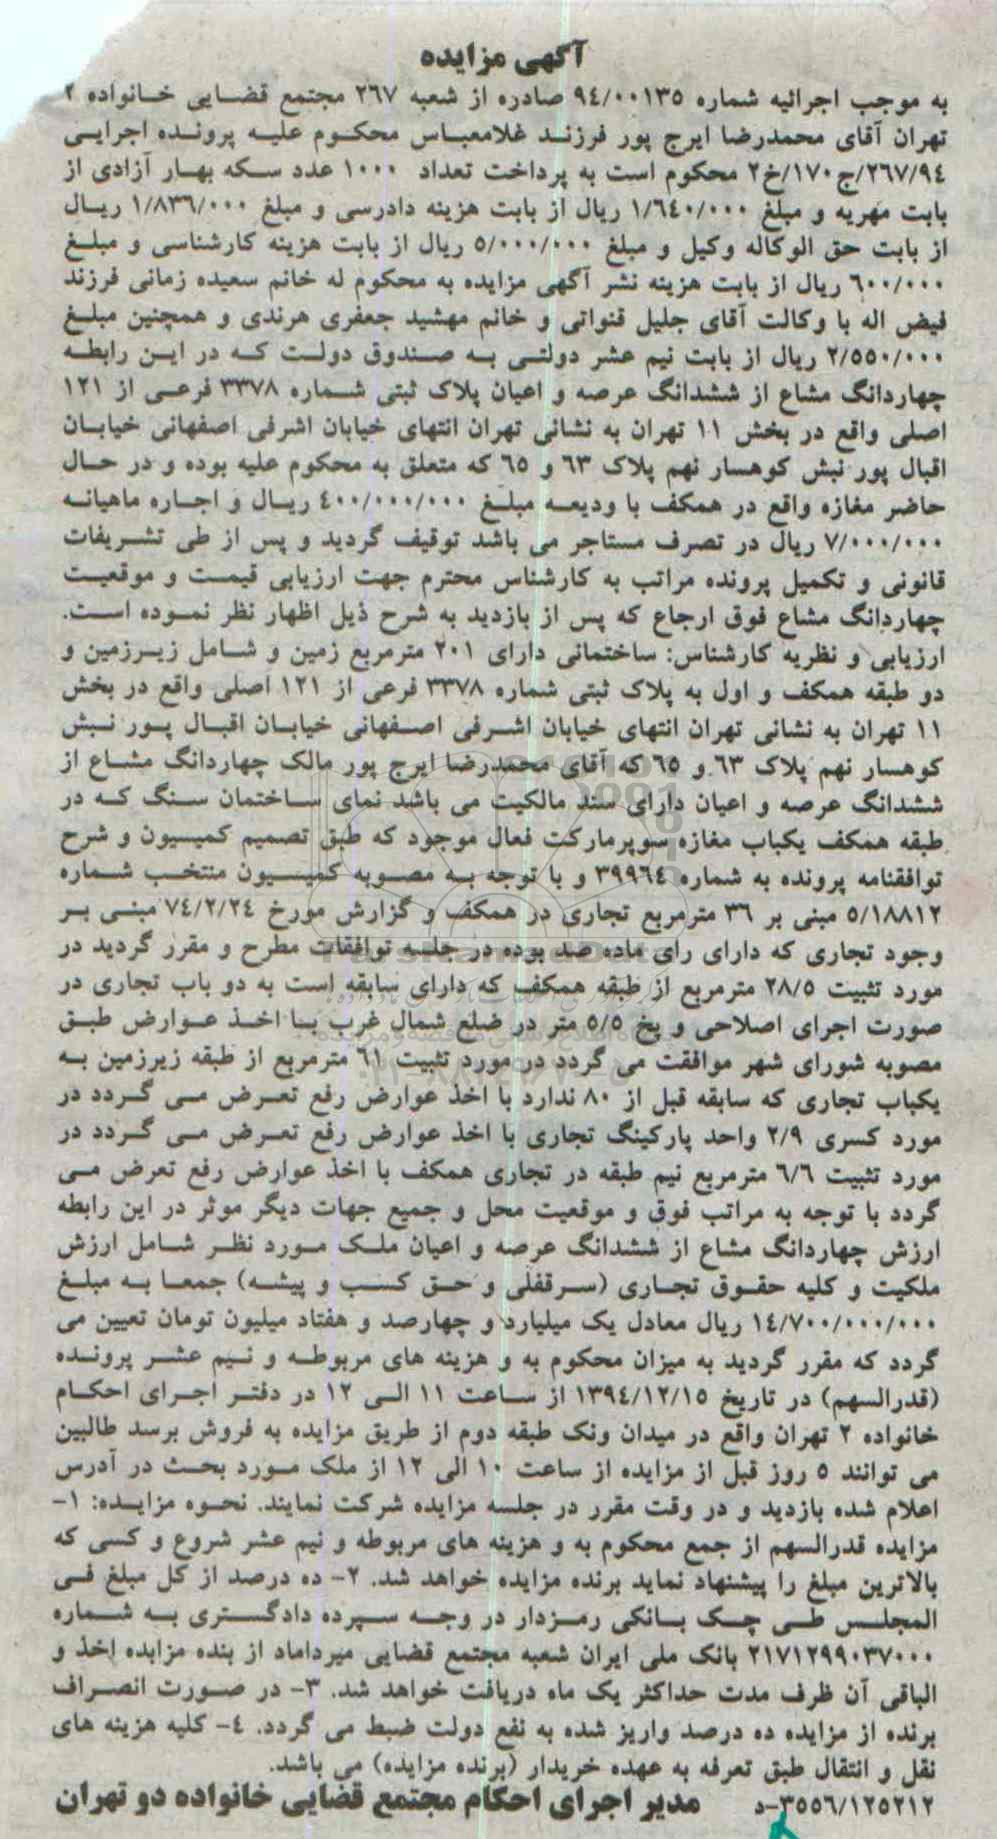 آگهی مزایده
به موجب اجرائیه شماره ۹٤/۰۰۱۳۵ صادره از شعبه ۲٦۷ مجتمع قضایی خانواده ۲
تهران آقای محمدرضا ایرج پور فرزند غلامعباس محکوم علیه پرونده اجرایی
۲٦۷/۹٤/ج۱۷۰/خ۲ محکوم است به پرداخت تعداد ۱۰۰۰ عدد سکه بهار آزادی از
بابت مهریه و مبلغ ۱/٦٤۰/۰۰۰ ریال از بابت هزینه دادرسی و مبلغ ۱/۸۳٦/۰۰۰ ریال
از بابت حق الوکاله وکیل و مبلغ ۵/۰۰۰/۰۰۰ ریال از بابت هزینه کارشناسی و مبلغ
٦۰۰/۰۰۰ ریال از بابت هزینه نشر آگهی مزایده به محکوم له خانم سعیده زمانی فرزند
فیض اله با وکالت آقای جلیل قنواتی و خانم مهشید جعفری هرندی و همچنین مبلغ
۲/۵۵۰/۰۰۰ ریال از بابت نیم عشر دولتی به صندوق دولت که در این رابطه
چهاردانگ مشاع از ششدانگ عرصه و اعیان پلاک ثبتی شماره ۳۳۷۸ فرعی از ۱۲۱
اصلی واقع در بخش ۱۱ تهران به نشانی تهران انتهای خیابان اشرفی اصفهانی خیابان
اقبال پور نبش کوهسار نهم پلاک ٦۳ و ٦۵ که متعلق به محکوم علیه بوده و در حال
حاضر مغازه واقع در همکف با ودیعه مبلغ ٤۰۰/۰۰۰/۰۰۰ ریال و اجاره ماهیانه
۷/۰۰۰/۰۰۰ ریال در تصرف مستاجر می باشد توقیف گردید و پس از طی تشریفات
قانونی و تکمیل پرونده مراتب به کارشناس محترم جهت ارزیابی قیمت و موقعیت
چهاردانگ مشاع فوق ارجاع که پس از بازدید به شرح ذیل اظهار نظر نموده است.
ارزیابی و نظریه کارشناس: ساختمانی دارای ۲۰۱ مترمربع زمین و شامل زیرزمین و
دو طبقه همکف و اول به پلاک ثبتی شماره ۳۳۷۸ فرعی از ۱۲۱ اصلی واقع در بخش
۱۱ تهران به نشانی تهران انتهای خیابان اشرفی اصفهانی خیابان اقبال پور نبش
کوهسار نهم پلاک ٦۳ و ٦۵ که آقای محمدرضا ایرج پور مالک چهاردانگ مشاع از
ششدانگ عرصه و اعیان دارای سند مالکیت می باشد نمای ساختمان سنگ که در
طبقه همکف یکباب مغازه سوپرمارکت فعال موجود که طبق تصمیم کمیسیون و شرح
توافقنامه پرونده به شماره ۳۹۹٦٤ و با توجه به مصوبه کمیسیون منتخب شماره
۵/۱۸۸۱۲ مبنی بر ۳٦ مترمربع تجاری در همکف و گزارش مورخ ۷٤/۲/۲٤ مبنی بر
وجود تجاری که دارای رای ماده صد بوده در جلسه توافقات مطرح و مقرر گردید در
مورد تثبیت ۲۸/۵ مترمربع از طبقه همکف که دارای سابقه است به دو باب تجاری در
صورت اجرای اصلاحی و پخ ۵/۵ متر در ضلع شمال غرب با اخذ عوارض طبق
مصوبه شورای شهر موافقت می گردد در مورد تثبیت ٦۱ مترمربع از طبقه زیرزمین به
یکباب تجاری که سابقه قبل از ۸۰ ندارد با اخذ عوارض رفع تعرض می گردد در
مورد کسری ۲/۹ واحد پارکینگ تجاری با اخذ عوارض رفع تعرض می گردد در
مورد تثبیت ٦/٦ مترمربع نیم طبقه در تجاری همکف با اخذ عوارض رفع تعرض می
گردد با توجه به مراتب فوق و موقعیت محل و جمیع جهات دیگر موثر در این رابطه
ارزش چهاردانگ مشاع از ششدانگ عرصه و اعیان ملک مورد نظر شامل ارزش
ملکیت و کلیه حقوق تجاری (سرقفلی و حق کسب و پیشه) جمعا به مبلغ
۱٤/۷۰۰/۰۰۰/۰۰۰ ریال معادل یک میلیارد و چهارصد و هفتاد میلیون تومان تعیین می
گردد که مقرر گردید به میزان محکوم به و هزینه های مربوطه و نیم عشر پرونده
(قدرالسهم) در تاریخ ۱۳۹٤/۱۲/۱۵ از ساعت ۱۱ الی ۱۲ در دفتر اجرای احکام
خانواده ۲ تهران واقع در میدان ونک طبقه دوم از طریق مزایده به فروش برسد طالبین
می توانند ۵ روز قبل از مزایده از ساعت ۱۰ الی ۱۲ از ملک مورد بحث در آدرس
اعلام شده بازدید و در وقت مقرر در جلسه مزایده شرکت نمایند. نحوه مزایده: ۱-
مزایده قدرالسهم از جمع محکوم به و هزینه های مربوطه و نیم عشر شروع و کسی که
بالاترین مبلغ را پیشنهاد نماید برنده مزایده خواهد شد. ۲- ده درصد از کل مبلغ فی
المجلس طی چک بانکی رمزدار در وجه سپرده دادگستری به شماره
۲۱۷۱۲۹۹۰۳۷۰۰۰ بانک ملی ایران شعبه مجتمع قضایی میرداماد از بنده مزابده اخذ و
الباقی آن ظرف مدت حداکثر یک ماه دریافت خواهد شد. ۳- در صورت انصراف
برنده از مزایده ده درصد واریز شده به نفع دولت ضبط می گردد. ٤- کلیه هزینه های
نقل و انتقال طبق تعرفه به عهده خریدار (برنده مزایده) می باشد.
۳۵۵٦/۱۲۵۲۱۲-د مدیر اجرای احکام مجتمع قضایی خانواده دو تهران